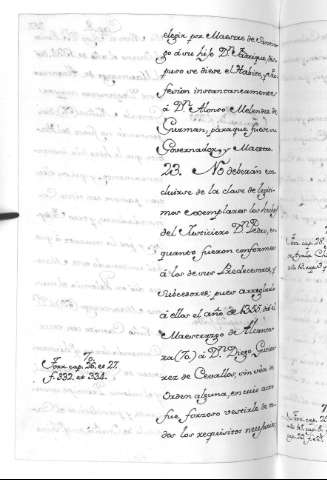 elegir por Maestre de Santia
go á su hijo Dn. Fadrique, des
pues se diese el Habito, y hi
ciesen instantaneamente
á Dn. Alonso Melendez de
Guzman, para que fuese su
Governador, y Maestre.
23. No deberán ex
cluirse de la clase de legiti
mos exemplares los hechos
del Justiciero Dn. Pedro, en
quanto fueron conformes
á los de sus Predecesores, y
subcesores; pues arreglado
á ellos el año de 1355. dió el
Maestrazgo de Alcanta
ra (76) á Dn. Diego Gutier
rez de Cevallos, sin ser de
Orden alguna, en cuio acto
fue forzoso vestirle de to
dos los requisitos necesarios,
Torr. cap. 26. et 27.
f. 332. et 334.